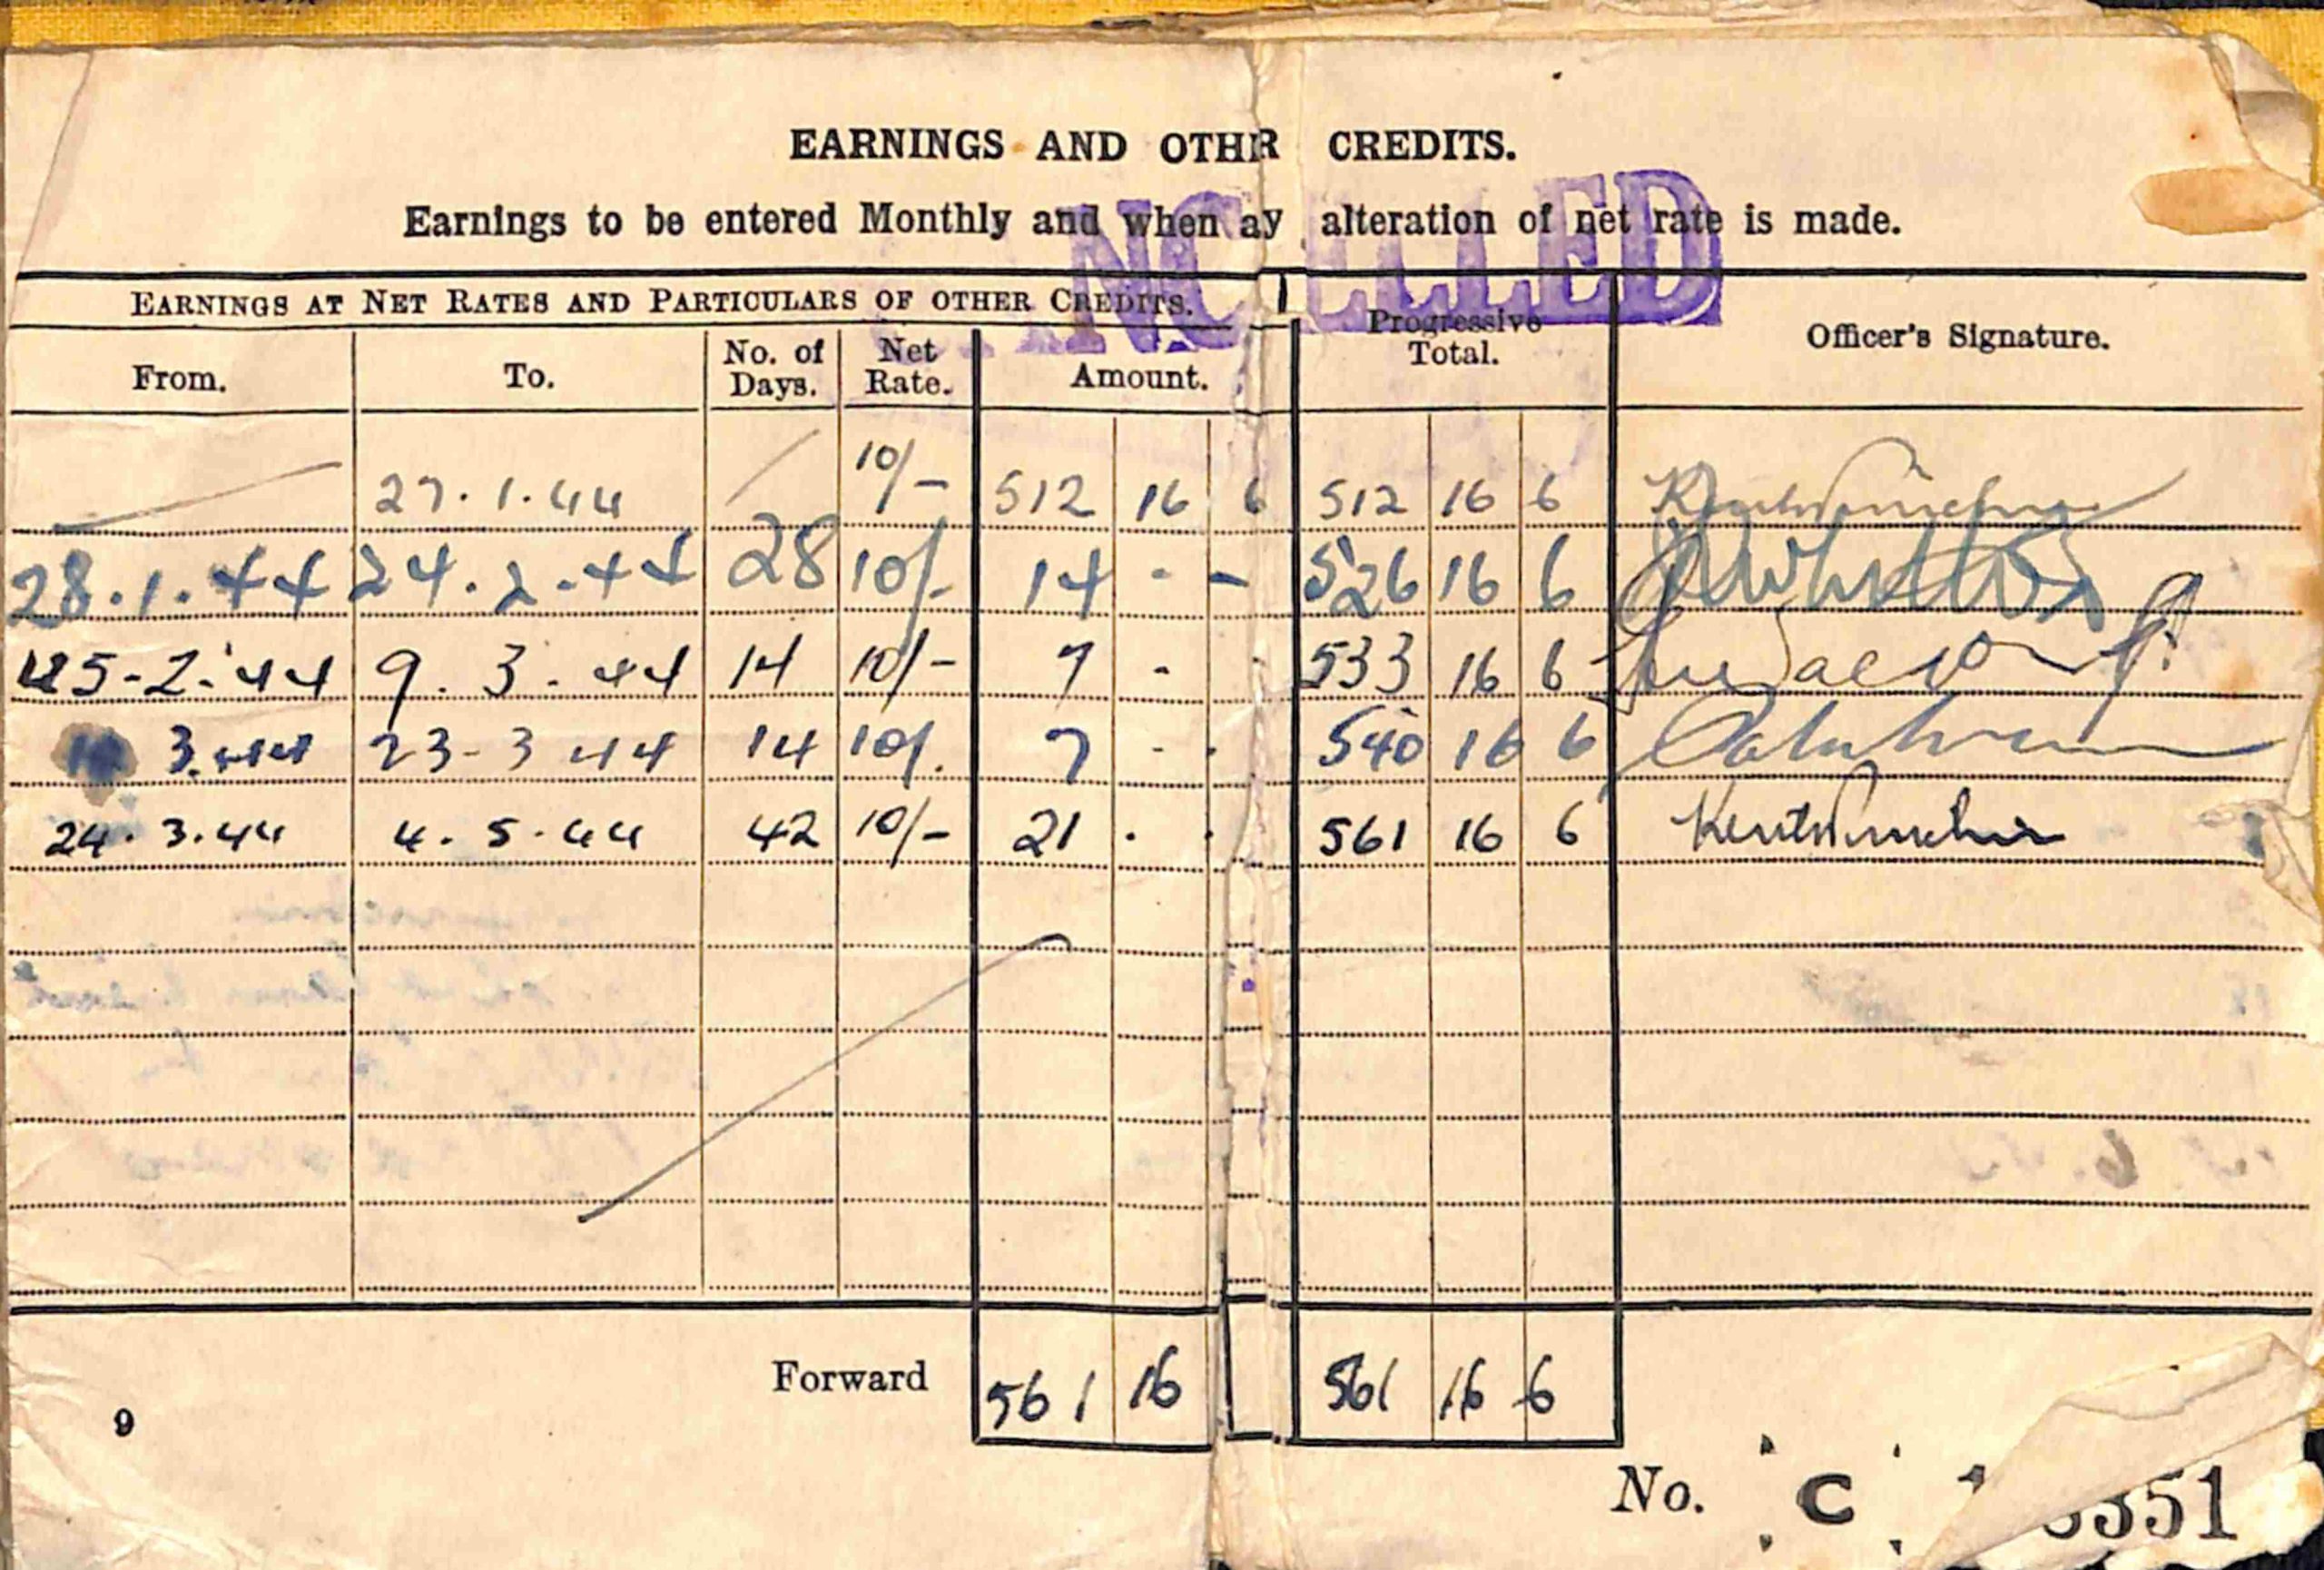 EARNINGS AND OTHR CREDITS.
Earnings to be entered Monthly and when ay alteration of net rate is made.
NCELLED
EARNINGS AT NET RATES AND PARTICULARS OF OTHER CREDITS.
From. To. No. of Days. Net Rate. Amount. Progressive Total. Officer's Signature.
27.1.44 10/- 512 16 6 512 16 6
28.1.44 24.2.44 28 10/- 14 - - 526 16 6
25-2-44 9.3.44 14 10/- 7 - 533 16 6
3.44 23-3 44 14 10/. 7 - . 540 16 6
24.3.44 4.5.44 42 10/- 21 . . 561 16 6
Forward 561 16 561 16 6
9
No. C 351